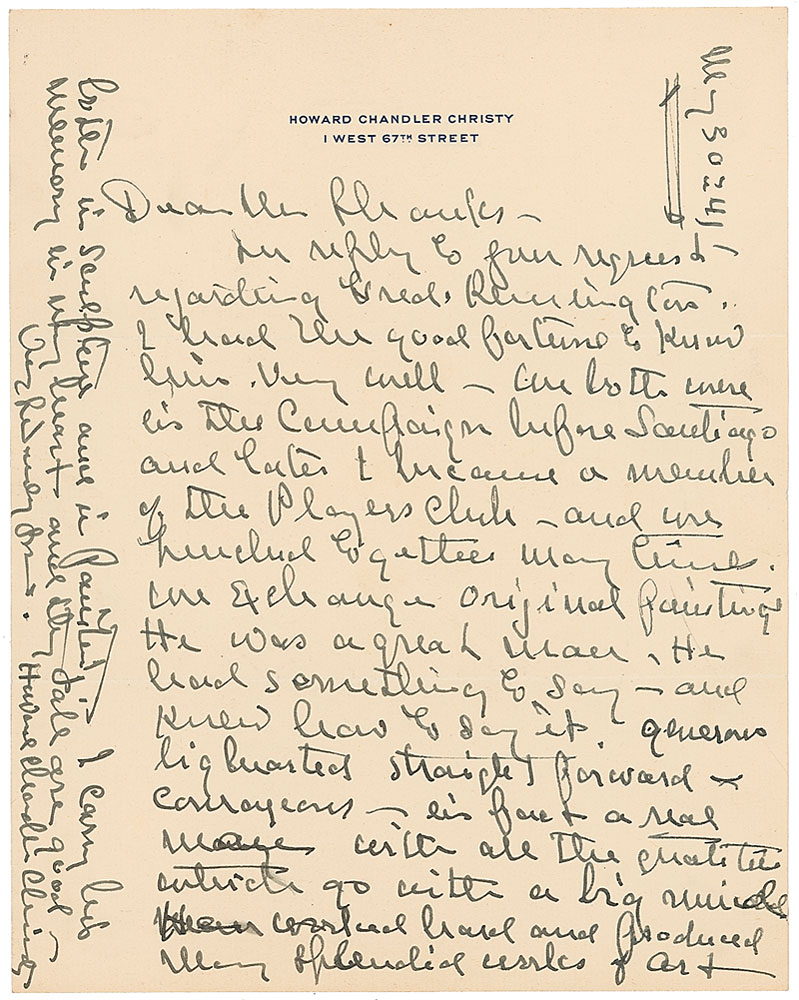 HOWARD CHANDLER CHRISTY
1 WEST 67TH STREET
May 30 241
Dear Mr Shanks –
In reply to your request
regarding Fred. Remington..
I had the good fortune to know
him. Very well – we both were
in the Campaign before Santiago
and later I became a member
of the Players Club – and we
lunched together many times.
we exchange original paintings
He was a great man. He
had something to say – and
knew how to say it. generous
bighearted straight forward –
courageous – in fact a real
with all the qualities
which go with a big mind
worked hard and produced
many splendid works of art
both in Sculpture and in Painting I carry his
memory in my heart – and they say are good –
Very sincerely
Howard Chandler Christy